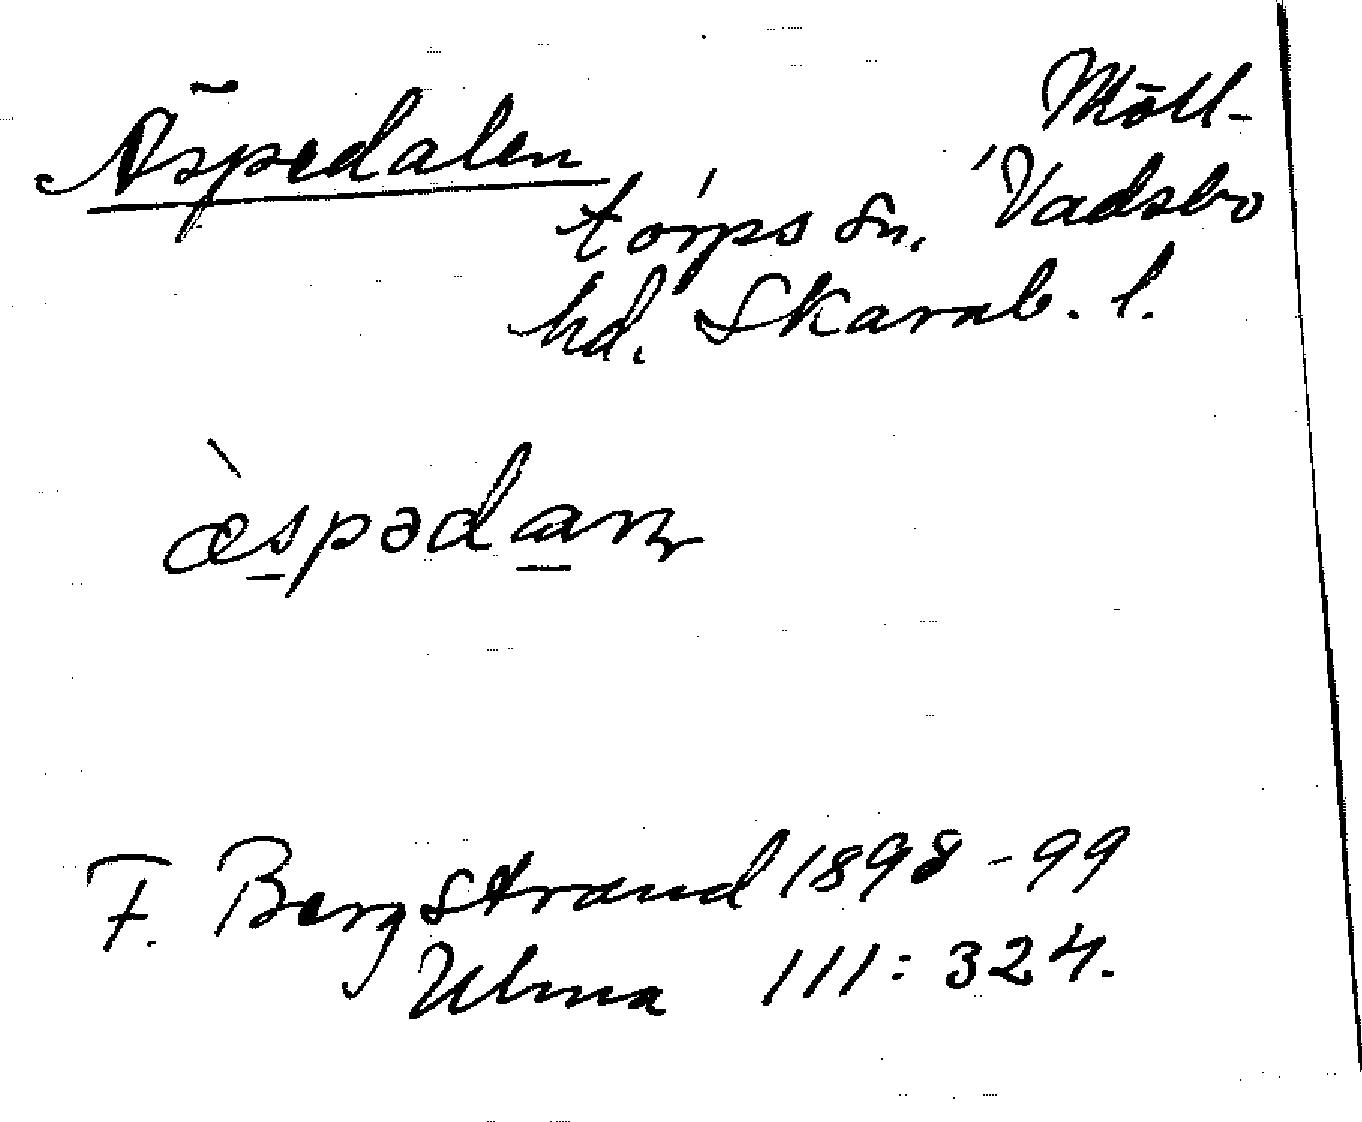 Äspedalen
Möll-
torps sn. Vadsbo
hd. Skarab. l.
æ̀spədaɳ
F. Bergstrand 1898-99
Ulma 111:324.